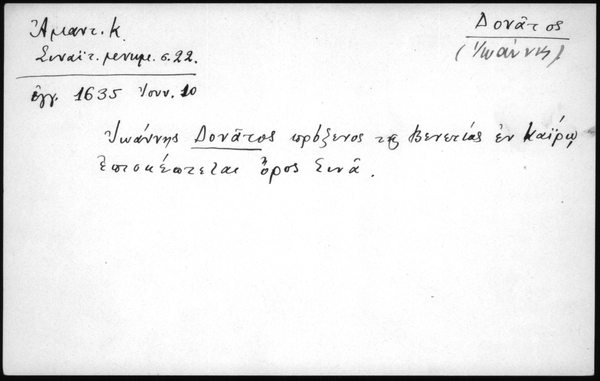 Ἀμαντ. Κ.
Σιναϊτ. μνημ. σ. 22.
ἔγγ. 1635 Ἰουν. 10
Δονᾶτος
(Ἰωάννης).
Ἰωάννης Δονᾶτος πρόξενος τῆς Βενετίας ἐν Καΐρῳ,
ἐπισκέπτεται Ὄρος Σινᾶ.